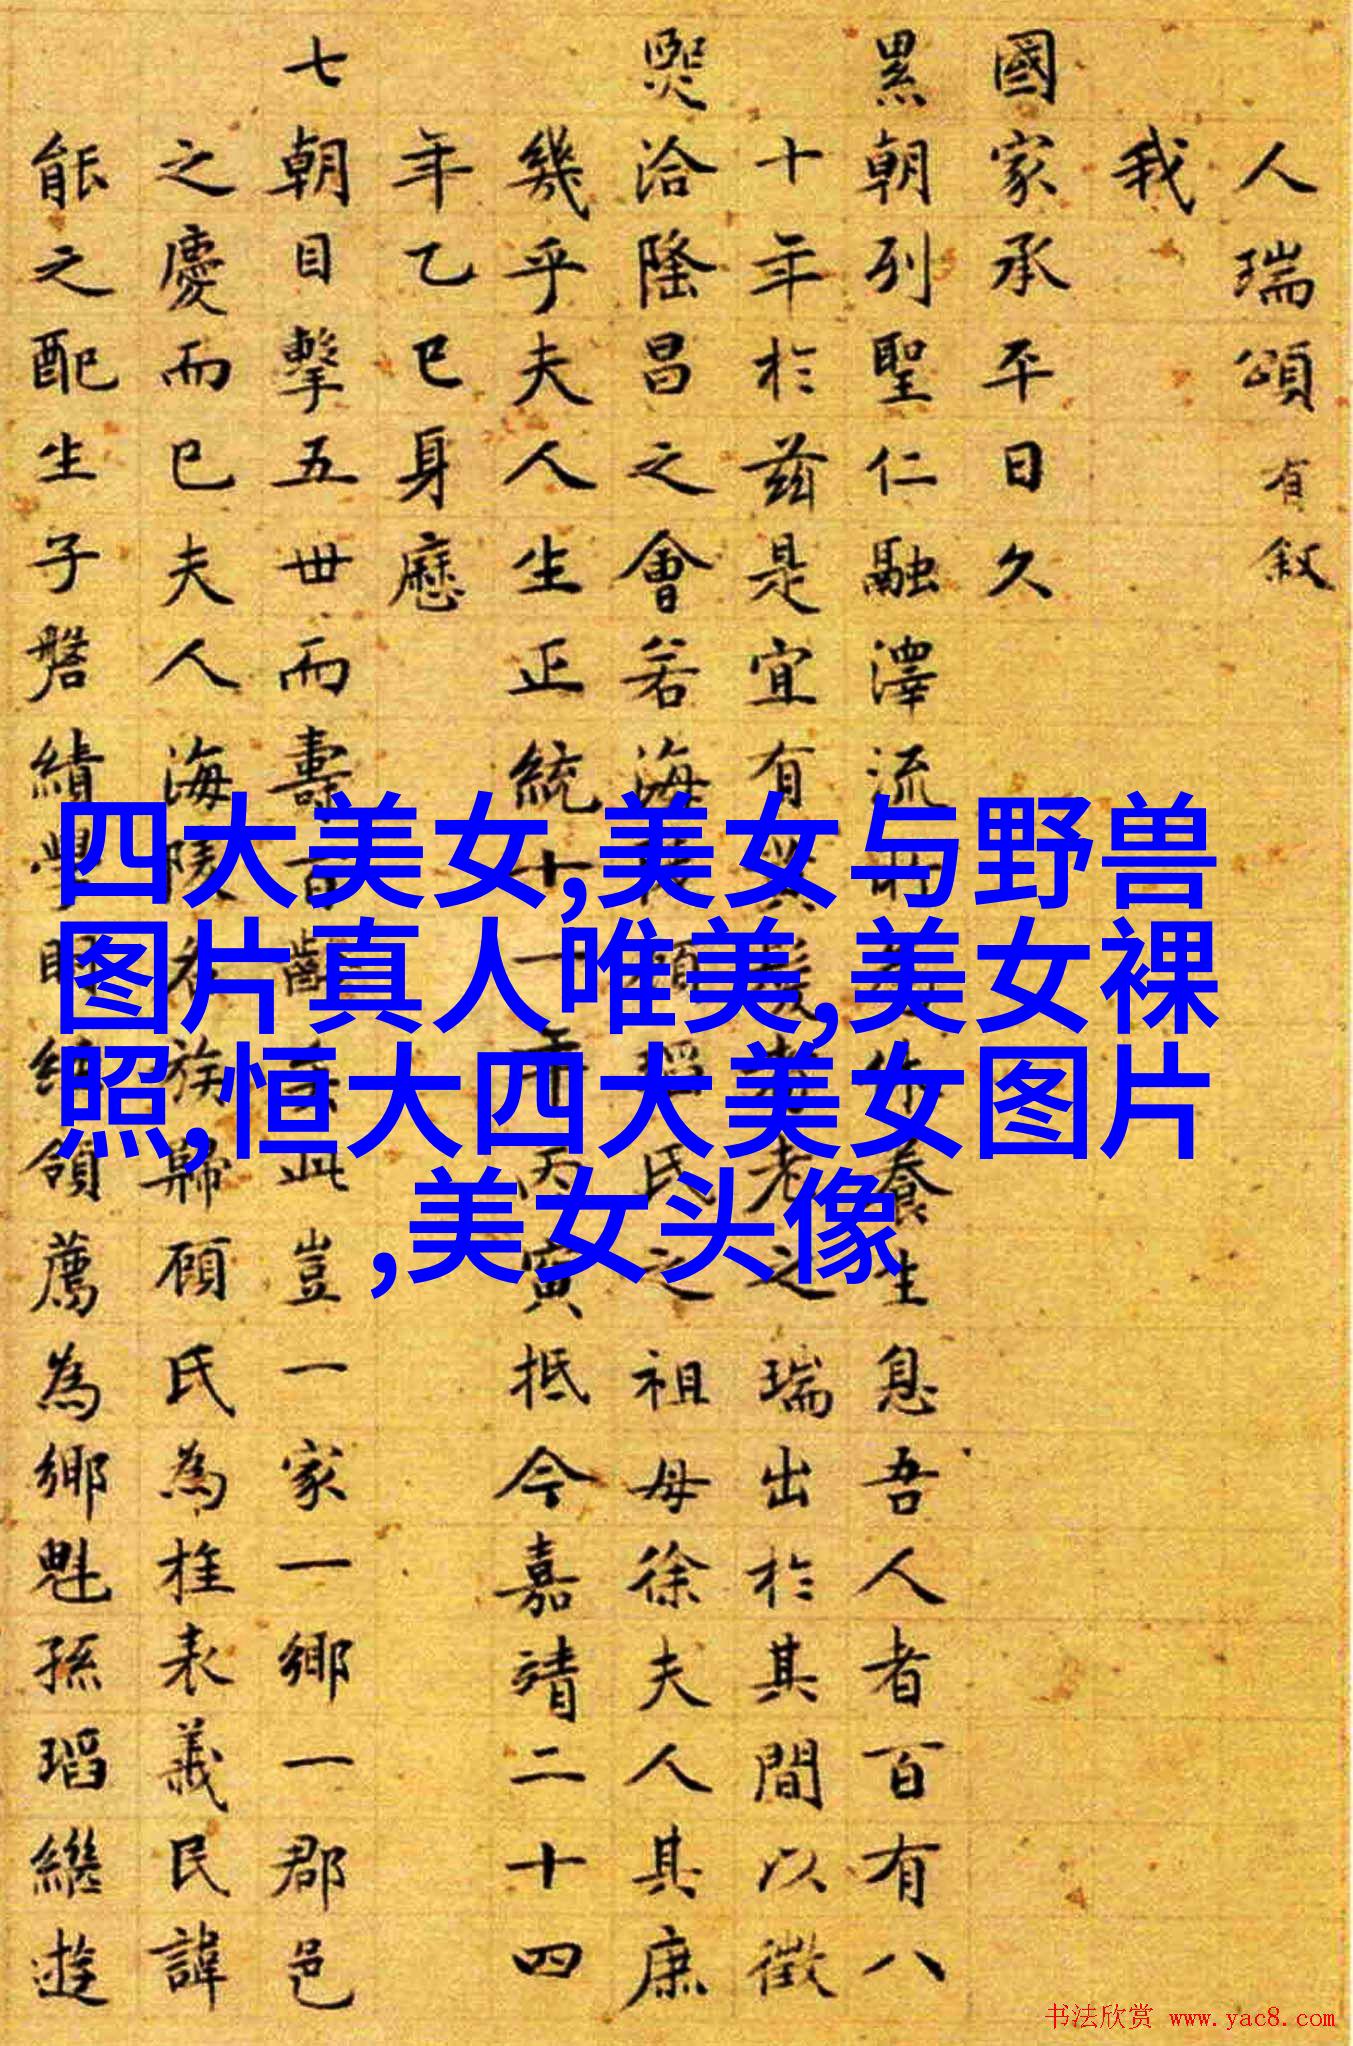 人瑞頌有叙
我
國家承平日久
累朝列聖仁融澤流
養生息吾人者百有八
十年於兹是宜有
老之瑞出於其間以徵
熙洽隆昌之會若海
氏之祖母徐夫人其庶
幾乎夫人生正統十一年丙寅抵今嘉靖二十四
年乙巳身歷
七朝目擊五世而壽百
此豈一家一鄉一郡邑
之慶而已夫人海陵
族歸顧氏為桂表義民諱
能之配生子磐績學
領薦為鄉魁孫瑫繼遊
四大美女,美女与野兽
图片真人唯美,美女裸
照,恒大四大美女图片
,美女头像
书法欣赏 www.yac8.com